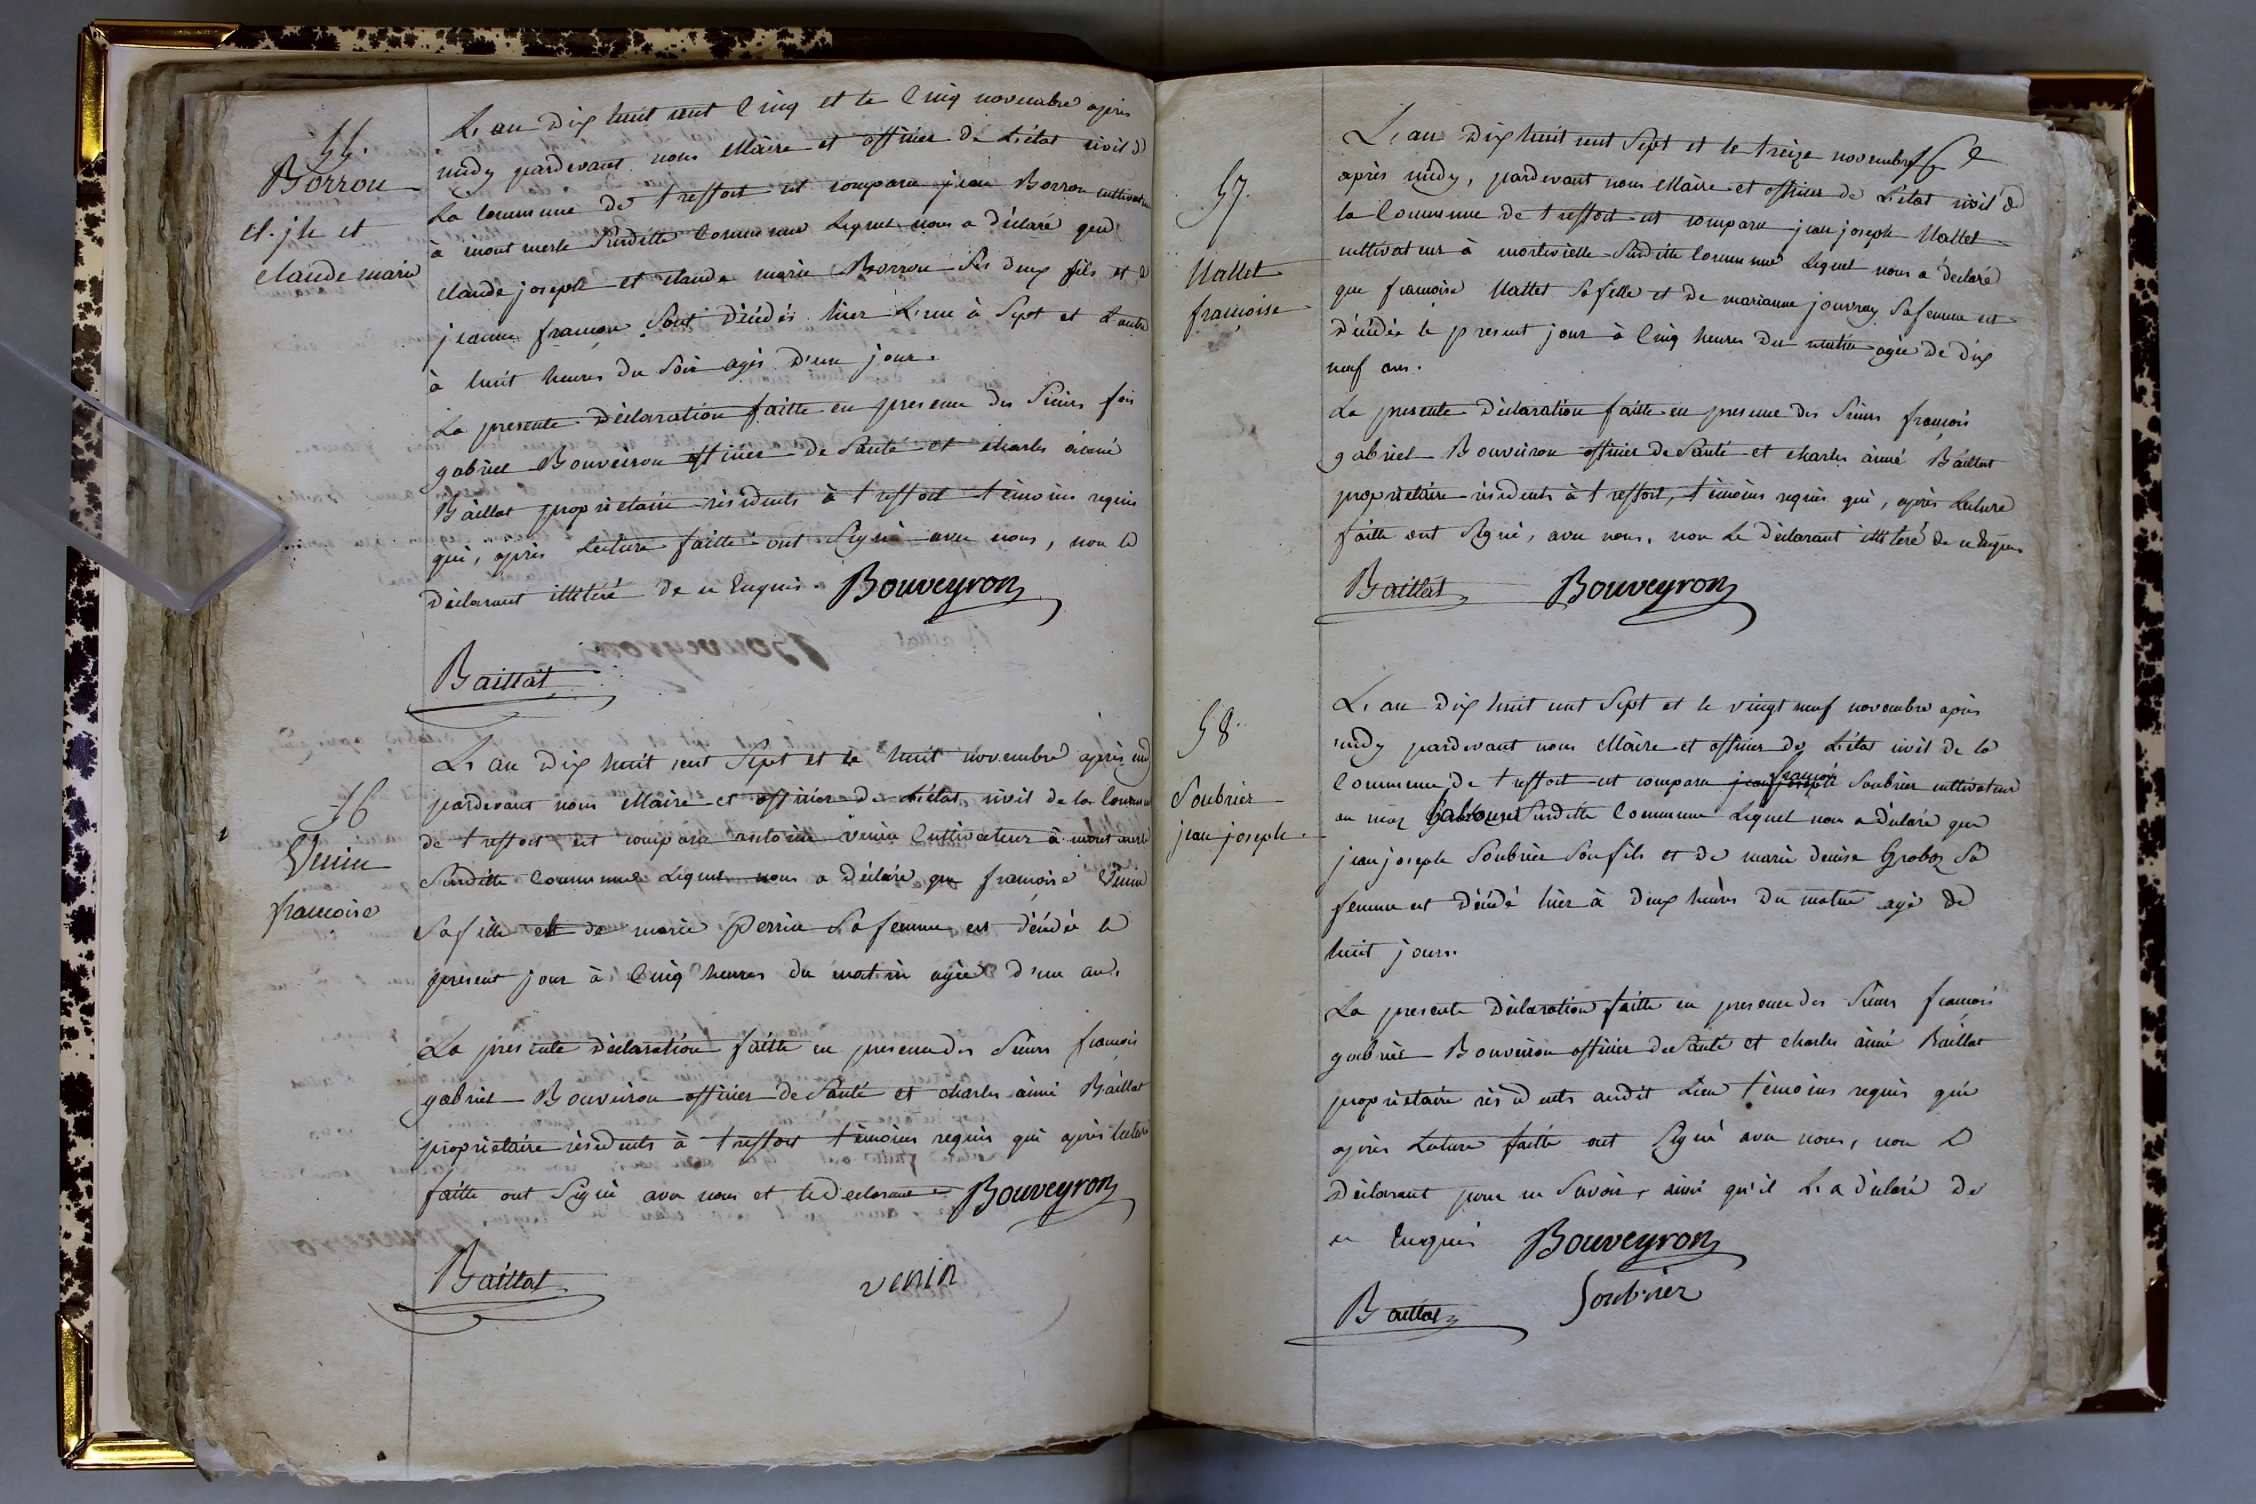 55.
Borron
cl. jh et
claude marie
L'an dix huit cent Cinq et le Cinq novembre après
midy pardevant nous Maire et officier de L'état civil de
La Commune de treffort est comparu jean Borron cultivateur
à montmerle Susditte Commune Lequel nous a déclaré que
claude joseph et claude marie Borron Ses deux fils et de
jeanne françon Sont décédés hier L'un à Sept et Lautre
à huit heures du Soir agés d'un jour.
La presente déclaration faitte en presence des Sieurs fois
gabriel Bouveiron officier de Santé et charles aimé
Baillat proprietaire résidents à treffort témoins requis
qui, après Lecture faitte ont Signé avec nous, non le
déclarant illiteré de ce Enquis. Bouveyron
Baillat
56
Venin
françoise
L'an dix huit cent Sept et le huit novembre après midy
pardevant nous Maire et officier de L'état civil de la Commune
de treffort est comparu antoine venin Cultivateur à montmerle
Susditte Commune Lequel nous a déclaré que françoise Venin
Sa fille et de marie Perrin Sa femme est décédée le
present jour à Cinq heures du matin agée d'un an.
La presente déclaration faitte en presence des Sieurs françois
gabriel Bouveiron officier de Santé et charles aimé Baillat
proprietaire résidents à treffort témoins requis qui après lecture
faitte ont Signé avec nous et le Declarant Bouveyron
Baillat venin
57.
Nallet
françoise
L'an dix huit cent Sept et le treize novembre
après midy, pardevant nous Maire et officier de L'état civil de
la Commune de treffort est comparu jean joseph Nallet
cultivateur à Susditte Commune Lequel nous a déclaré
que françoise Nallet Sa fille et de marianne jouvray Sa femme est
décédée le present jour à Cinq heures du matin agée de dix
neuf ans.
La presente déclaration faitte en presence des Sieurs françois
gabriel Bouveiron officier de Santé et charles aimé Baillat
proprietaire résidents à treffort, témoins requis qui, après Lecture
faitte ont Signé, avec nous, non Le déclarant illiteré de ce Enquis
Baillat Bouveyron
58.
Soubrier
jean joseph.
L'an dix huit cent Sept et le vingt neuf novembre après
midy pardevant nous Maire et officier de L'état civil de la
Commune de treffort est comparu jean joseph françois Soubrier cultivateur
au Susditte Commune Lequel nous a déclaré que
jean joseph Soubrier Son fils et de marie denise Groboz Sa
femme est décédé hier à deux heures du matin agé de
huit jours.
La presente déclaration faitte en presence des Sieurs françois
gabriel Bouveiron officier de Santé et charles aimé Baillat
proprietaire résidents audit Lieu témoins requis qui
après Lecture faitte ont Signé avec nous, non le
déclarant pour ne Savoir, ainsi qu'il L'a déclaré de
ce Enquis Bouveyron
Baillat Soubrier